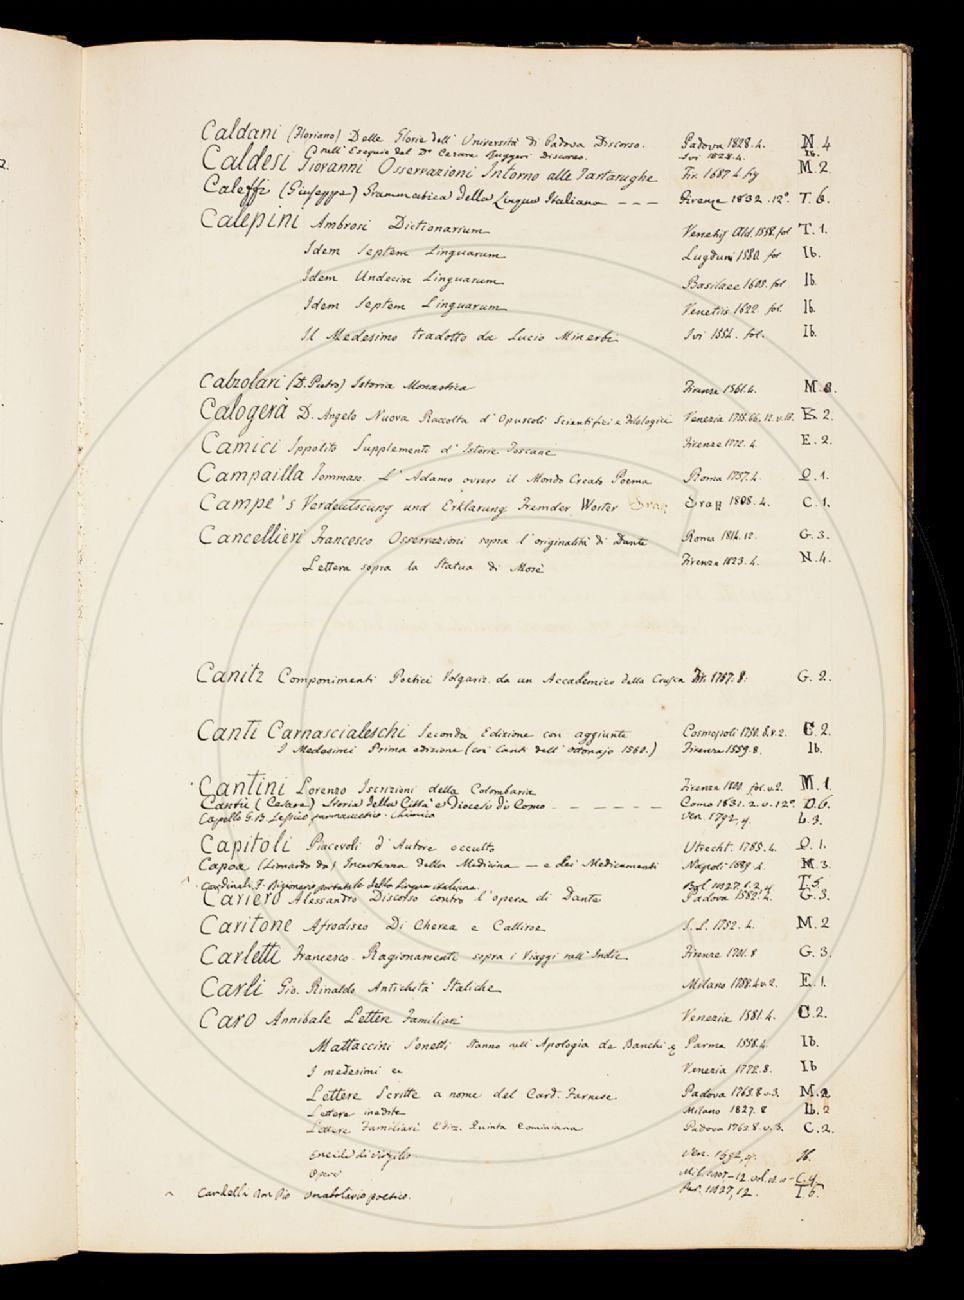 Caldani (Floriano) Delle Glorie dell' Università di Padova Discorso. Padova 1828. 4. N 4
nell' Esequie del Dr Cesare Ruggeri Discorso. Ivi 1828. 4. Ib.
Caldesi Giovanni Osservazioni Intorno alle Tartarughe Fir. 1687. 4 fig M. 2
Caleffi (Giuseppe) Grammatica della Lingua Italiana - - - Firenze 1832. 12º T. 6.
Calepini Ambrosi Dictionarium Venetijs Ald. 1558. fol T. 1.
Idem Septem Linguarum Lugduni 1580 fol Ib.
Idem Undecim Linguarum Basileae 1605. fol Ib.
Idem Septem Linguarum Venetiis 1622 fol. Ib
Il Medesimo tradotto da Lucio Minerbi Ivi 1552. fol. Ib.
Calzolari (D. Pietro) Istoria Monastica Firenze 1561. 4. M. 8.
Calogerà D. Angelo Nuova Raccolta d' Opuscoli Scientifici e Filologici Venezia K 2.
Camici Ippolito Supplementi d' Istorie Toscane Firenze 1772. 4 E. 2.
Campailla Tommaso L' Adamo ovvero il Mondo Creato Poema Roma 1757. 4. Q. 1.
Campe's Verdeutscung und Erklärung Fremder Worter Graz 1808. 4. C. 1.
Cancellieri Francesco Osservazioni sopra l' originalità di Dante Roma 1814. 12. G. 3.
Lettera sopra la Statua di Mosè Firenze 1823. 4. N. 4.
Canitz Componimenti Poetici Volgariz. da un Accademico della Crusca Fir. 1757. 8. G. 2.
Canti Carnascialeschi Seconda Edizione con aggiunte Cosmopoli 1750. 8. v. 2. C. 2.
I Medesimi Prima edizione (con Canti dell' Ottonajo 1560.) Firenze 1559. 8. Ib.
Cantini Lorenzo Iscrizioni della Colombaria Firenze 1800 fol. v. 2. M. 1.
Cantù (Cesare) Storia della Città e Diocesi di Como - - - - - - Como 1831. 2. v. 12º. D. 6.
Capello G. B. Lessico farmaceutico-chimico Ven. 1792, 4. L. 3.
Capitoli Piacevoli d' Autore occulto Utrecht. 1785. 4. Q. 1.
Capoa (Lionardo da) Incertezza della Medicina - e dei Medicamenti Napoli 1689. 4. M. 3.
Cardinali F. Dizionario portatile della lingua italiana. Bol. 1827. t. 2, 4 T. 5
Cariero Alessandro Discorso contro l' opera di Dante Padova 1582. 4. G. 3.
Caritone Afrodiseo Di Cherea e Calliroe S. L. 1752. 4. M. 2
Carletti Francesco. Ragionamenti sopra i Viaggi nell' Indie Firenze 1701. 8 G. 3.
Carli Gio. Rinaldo Antichità Italiche Milano 1788. 4 v. 2. E. 1.
Caro Annibale Lettere Familiari Venezia 1581. 4. C. 2.
Mattaccini Sonetti stanno nell' Apologia de Banchi Parma 1558. 4 Ib.
I medesimi Venezia 1772. 8. Ib
Lettere Scritte a nome del Card. Farnese Padova 1765. 8 v. 3. M. 2
Lettere inedite Milano 1827. 8 Ib. 2
Lettere Familiari Ediz. Quinta Cominiana Padova 1763. 8. v. 3. C. 2.
Eneide di Virgilio Ven. 1592, 4. Ib.
Opere C. 4.
Cardelli Ant. Pio Onatolario poetico. Par. 1827, 12. T. 6.